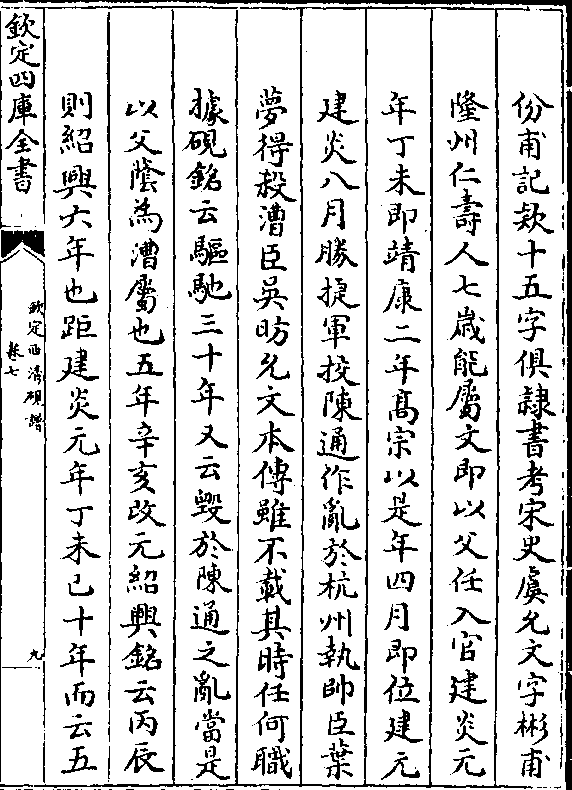 份甫記欵十五字俱隸書考宋史虞允文字彬甫
隆州仁壽人七歲能屬文即以父任入官建炎元
年丁未即靖康二年髙宗以是年四月即位建元
建炎八月勝捷軍挍陳通作亂於杭州執帥臣葉
夢得殺漕臣吳昉允文本傳雖不載其時任何職
據硯銘云驅馳三十年又云毀於陳通之亂當是
以父䕃為漕屬也五年辛亥改元紹興銘云丙辰
則紹興六年也距建炎元年丁未已十年而云五
欽定四庫全書
欽定西清硯譜
卷七
九